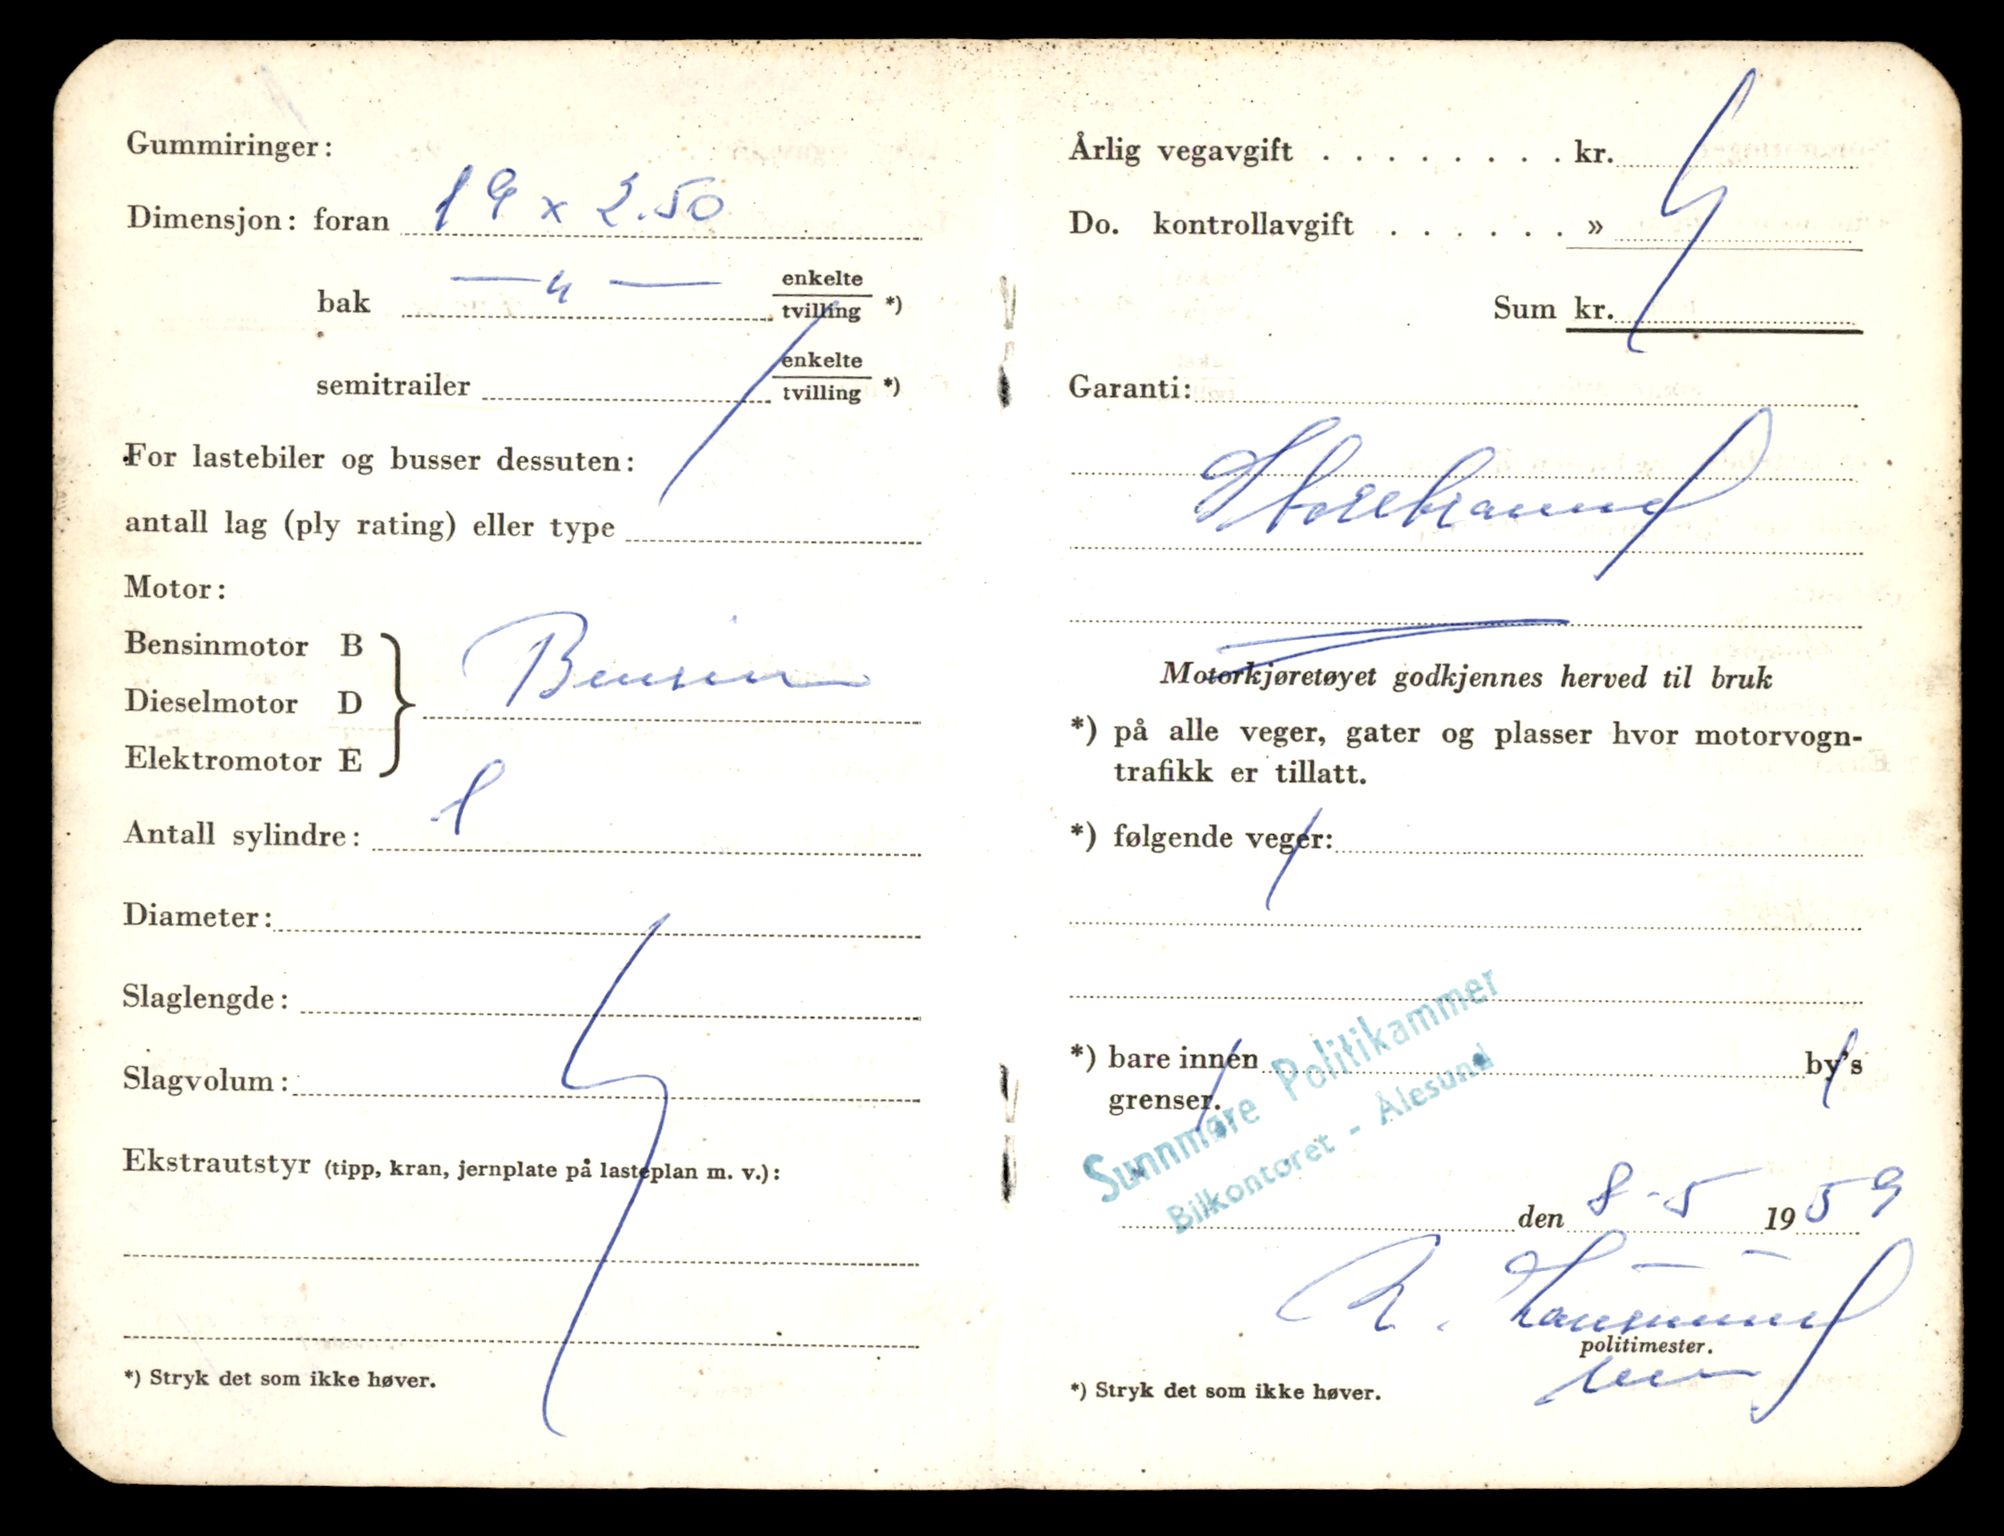 Gummiringer:
Dimensjon: foran 19 x 2.50
bak — " — enkelte
tvilling *)
semitrailer enkelte
tvilling *)
For lastebiler og busser dessuten:
antall lag (ply rating) eller type
Motor:
Bensinmotor B
Dieselmotor D Bensin
Elektromotor E
Antall sylindre: 1
Diameter:
Slaglengde:
Slagvolum:
Ekstrautstyr (tipp, kran, jernplate på lasteplan m. v.):
*) Stryk det som ikke høver.
Årlig vegavgift . . . . . . . . kr.
Do. kontrollavgift . . . . . . »
Sum kr.
Garanti:
Storebrand
Motorkjøretøyet godkjennes herved til bruk
*) på alle veger, gater og plasser hvor motorvogn-
trafikk er tillatt.
*) følgende veger:
*) bare innen by's
grenser.
Sunnmøre Politikammer
Bilkontoret - Ålesund
den 8-5 1959
politimester.
*) Stryk det som ikke høver.